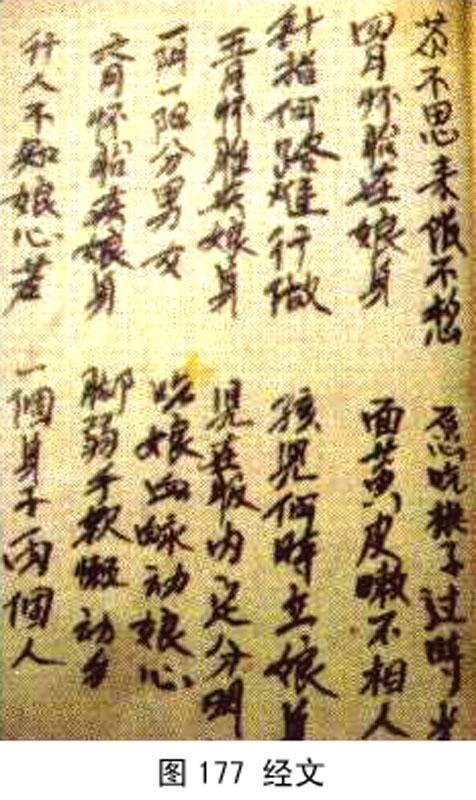 茶不思来饭不想 愿吃楳子过時光
四月怀胎在娘身 面黄皮嫩不相人
針指何路难行做 孩児何時立娘身
五月怀胎在娘身 児在服内定分明
一阴一阳分男女 吃娘血脉动娘心
六月怀胎在娘身 脚弱手软懒动
行人不知娘心苦 一個身子両個人
图 177 经文